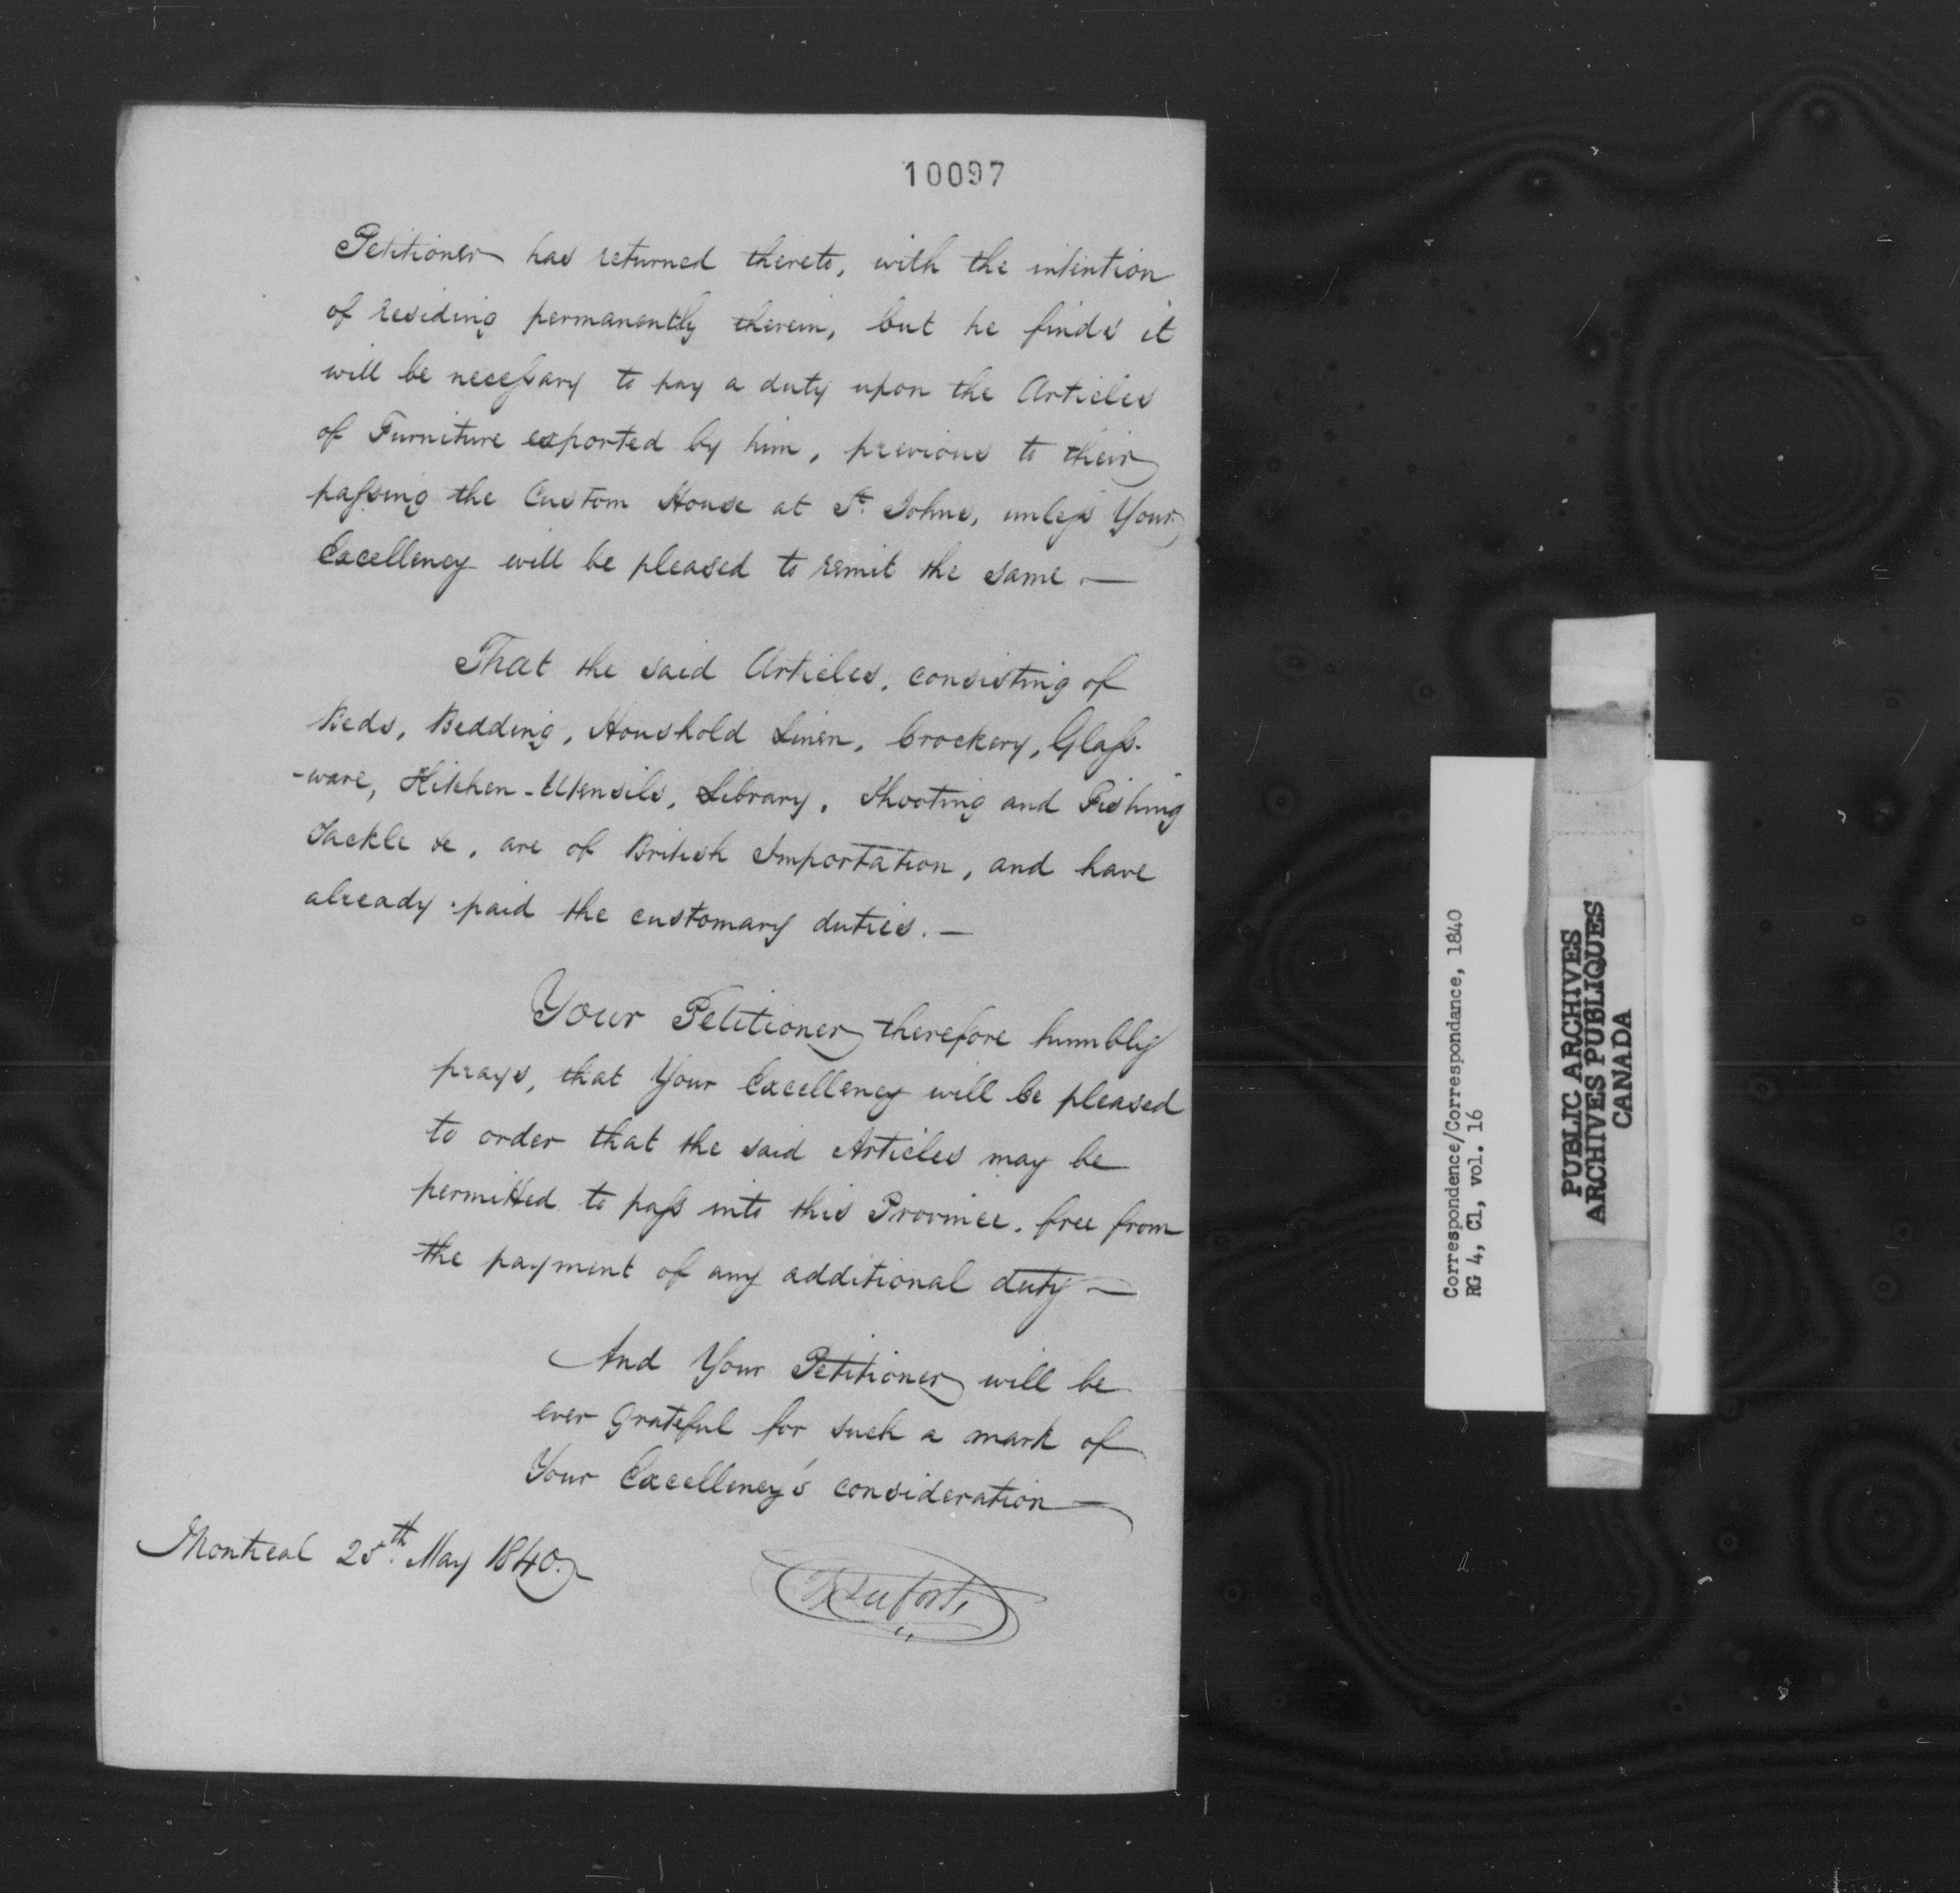 10097
Petitioner has returned thereto, with the intention
of residing permanently therein, but he finds it
will be necessary to pay a duty upon the Articles
of Furniture exported by him, previous to their
passing the Custom House at St. Johns, unless Your
Excellency will be pleased to remit the same —
That the said Articles, consisting of
Beds, Bedding, Houshold Linen, Crockery, Glass-
-ware, Kitchen-Utensils, Library, Shooting and Fishing
Tackle &c, are of British Importation, and have
already paid the customary duties. —
Your Petitioner therefore humbly
prays, that Your Excellency will be pleased
to order that the said Articles may be
permitted to pass into this Province, free from
the payment of any additional duty —
And Your Petitioner will be
ever grateful for such a mark of
Your Excellency's consideration —
Montreal 25th. May 1840.
Correspondence/Correspondance, 1840
RG 4, C1, vol. 16
PUBLIC ARCHIVES
ARCHIVES PUBLIQUES
CANADA